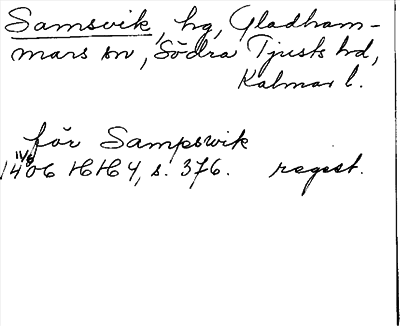 Samsvik, hg, Gladham-
mars sn, Södra Tjusts hd,
Kalmar l.
för Sampswik
11/6
1406 HH 4, s. 376. regest.